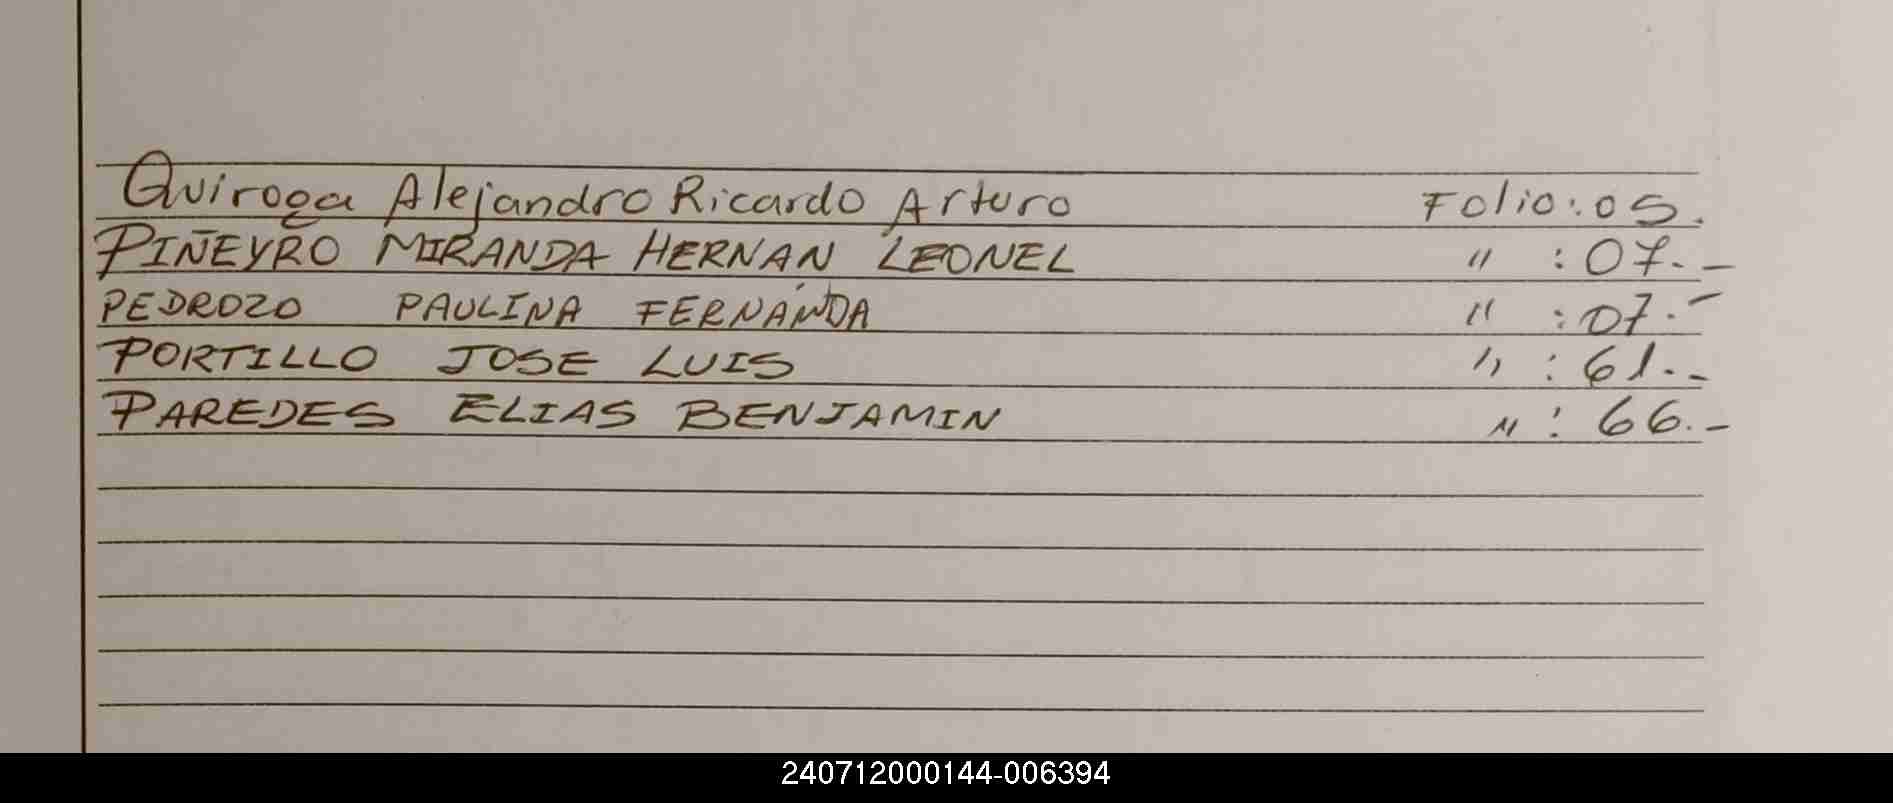 Quiroga Alejandro Ricardo Arturo Folio: 05.
PIÑEYRO MIRANDA HERNAN LEONEL " : 07.-
PEDROZO PAULINA FERNANDA " : 07.-
PORTILLO JOSE LUIS " : 61.-
PAREDES ELIAS BENJAMIN " : 66.-
240712000144-006394